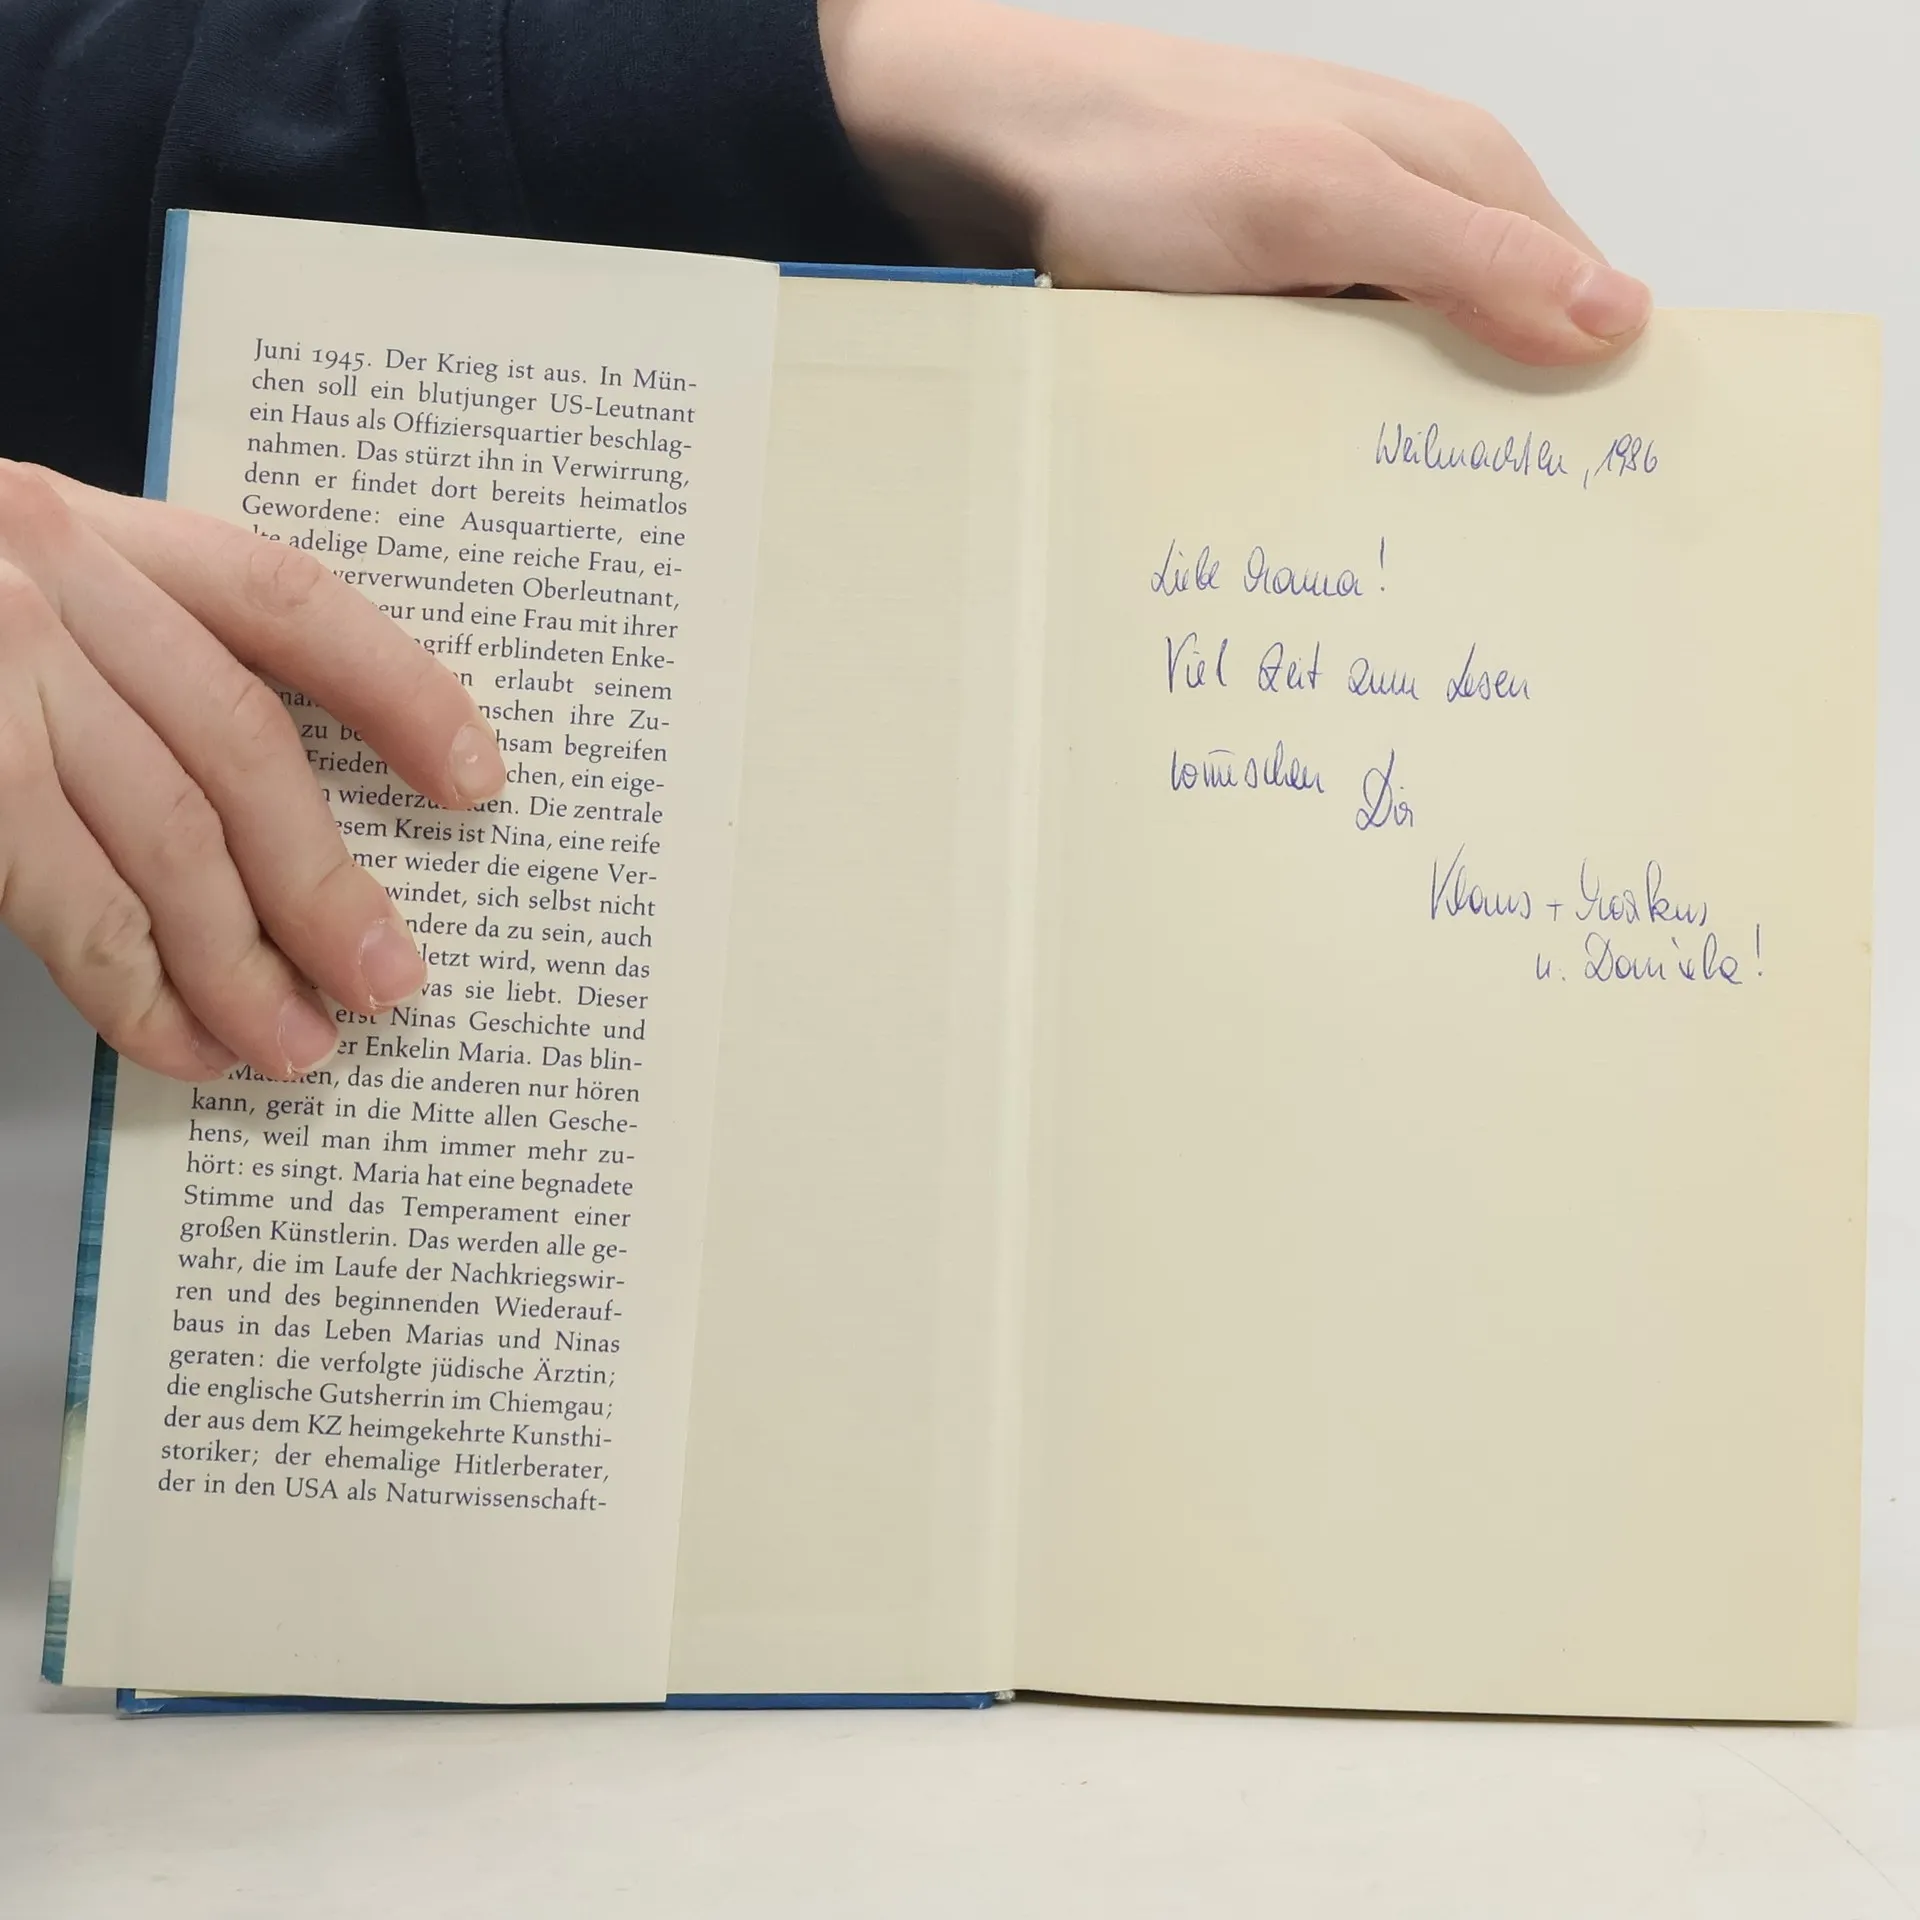 Juni 1945. Der Krieg ist aus. In Mün-
chen soll ein blutjunger US-Leutnant
ein Haus als Offiziersquartier beschlag-
nahmen. Das stürzt ihn in Verwirrung,
denn er findet dort bereits heimatlos
Gewordene: eine Ausquartierte, eine
lte adelige Dame, eine reiche Frau, ei-
werverwundeten Oberleutnant,
eur und eine Frau mit ihrer
ngriff erblindeten Enke-
n erlaubt seinem
nschen ihre Zu-
zu be hsam begreifen
Frieden chen, ein eige-
n wiederzu den. Die zentrale
esem Kreis ist Nina, eine reife
mer wieder die eigene Ver-
windet, sich selbst nicht
ndere da zu sein, auch
letzt wird, wenn das
was sie liebt. Dieser
erst Ninas Geschichte und
er Enkelin Maria. Das blin-
Mädchen, das die anderen nur hören
kann, gerät in die Mitte allen Gesche-
hens, weil man ihm immer mehr zu-
hört: es singt. Maria hat eine begnadete
Stimme und das Temperament einer
großen Künstlerin. Das werden alle ge-
wahr, die im Laufe der Nachkriegswir-
ren und des beginnenden Wiederauf-
baus in das Leben Marias und Ninas
geraten: die verfolgte jüdische Ärztin;
die englische Gutsherrin im Chiemgau;
der aus dem KZ heimgekehrte Kunsthi-
storiker; der ehemalige Hitlerberater,
der in den USA als Naturwissenschaft-
Weihnachten, 1986
Liebe Mama!
Viel Zeit zum Lesen
wünschen Dir
Klaus + Markus
u. Daniela!